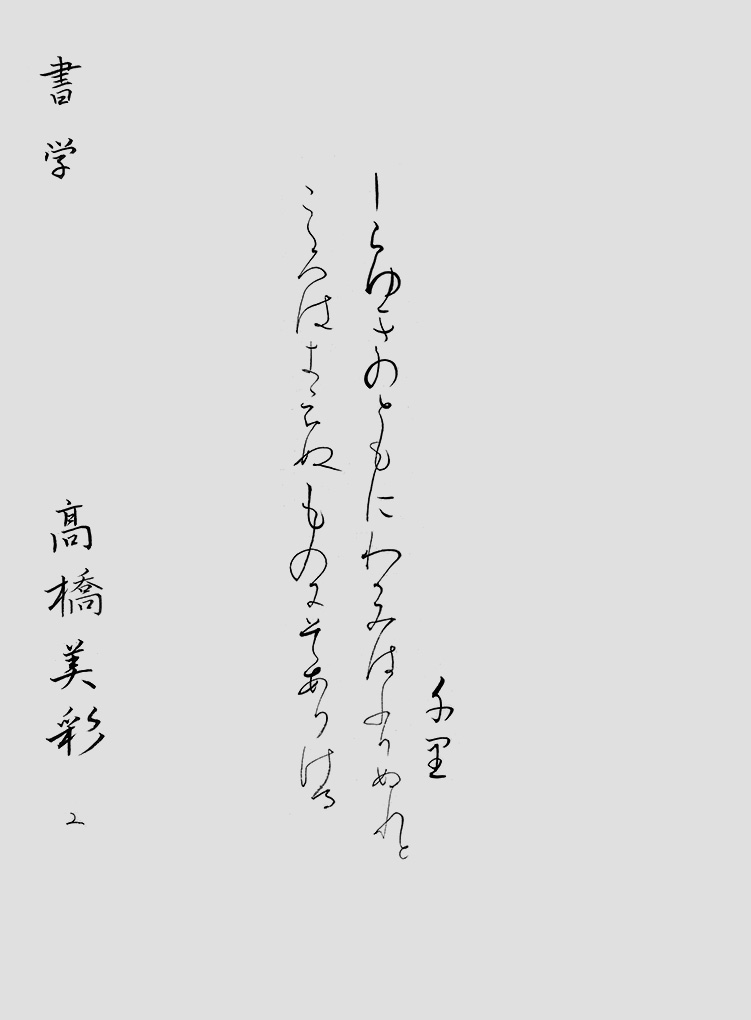 千里
しらゆきのともにわかみはふりぬれと
こゝろはきえぬものにそありける
書学
高橋美彩
2